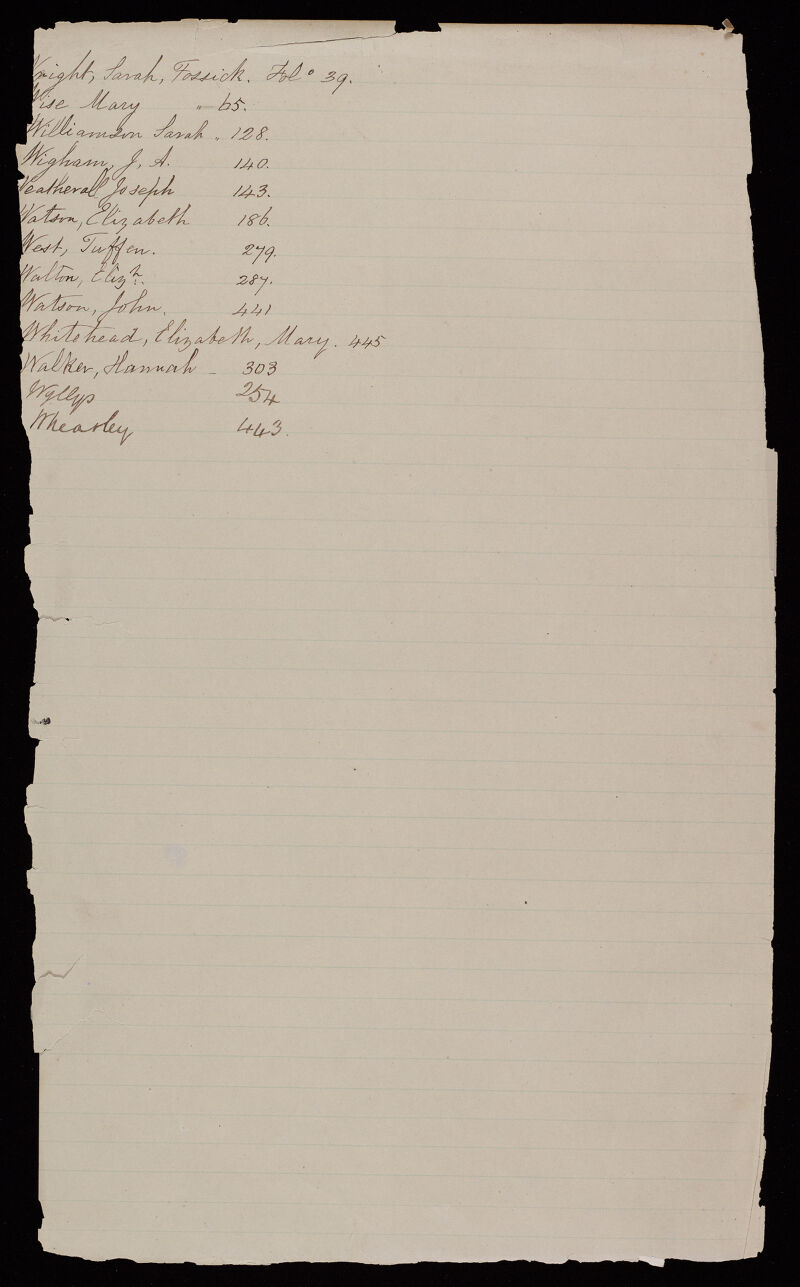 Wright, Sarah, Fossick. Folo 39.
Wise Mary " 65.
Williamson Sarah " 128.
Wigham, J, A. 140.
Weatherall Joseph 143.
Watson, Elizabeth 186.
West, Tuffen. 279.
Walton, Elizh. 287.
Watson, John. 441
Whitehead, Elizabeth, Mary. 445
Walker, Hannah - 303
Wyllys 254
Whearley 443.